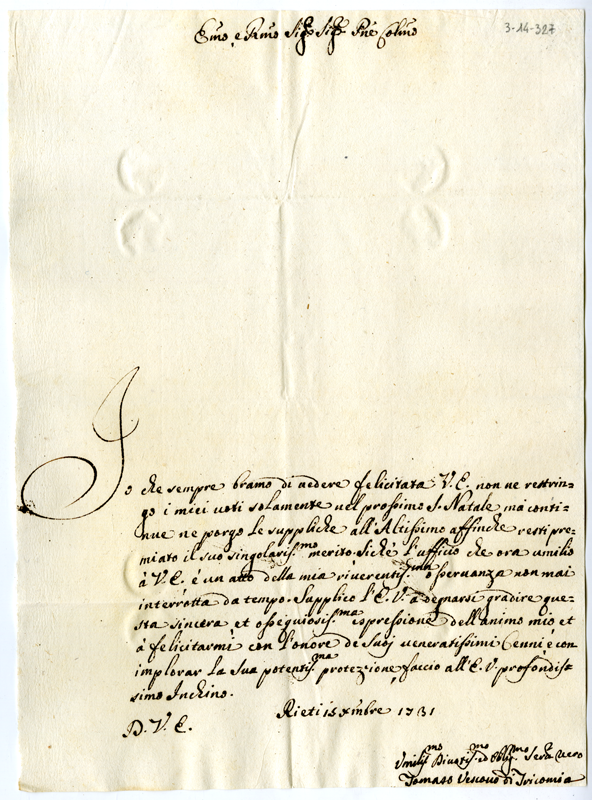 Emo, e Rmo Sig.r Sig.r Pne Colmo
3-14-327
Io che sempre bramo di vedere felicitata V.E. non ne restrin-
go i miei voti solamente nel prossimo S. Natale, ma conti-
nue ne porgo le suppliche all'Altissimo affinche resti pre-
miato il suo singolariss.mo merito. Siche l'uffizio che ora umilio
à V.E. è un atto della mia riverentiss.ma osservanza non mai
interrotta da tempo. Supplico l'E.V. à degnarsi gradire que-
sta sincera et ossequiosis.ma espressione dell'animo mio et
à felicitarmi con l'onore de suoi veneratissimi Cenni è con
implorar la sua potentis.ma protezione, faccio all'E.V. profondis-
simo Inchino.
Rieti 15 Xmbre 1731
D. V. E.
Umiliss.mo Divotiss.mo ed Obblig.mo Serv.e Vero
Tomaso Vescovo di Tricomia